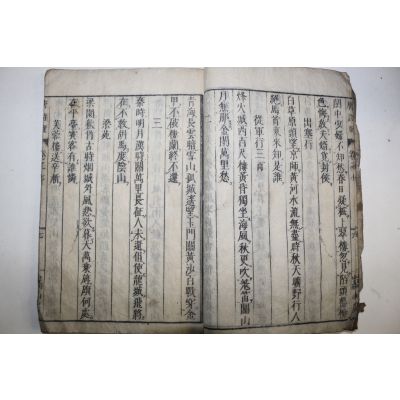 閨中少婦不知愁春日凝粧上翠樓忽見陌頭楊柳
色悔教夫壻覓封侯
出塞行
白草原頭望京師黃河水流無盡時秋天曠野行人
絕馬首東來知是誰
從軍行三首
烽火城西百尺樓黃昏獨坐海風秋更吹羌笛關山
月無那金閨萬里愁
二
青海長雲暗雪山孤城遙望玉門關黃沙百戰穿金
甲不破樓蘭終不還
三
秦時明月漢時關萬里長征人未還但使龍城飛將
在不敎胡馬度陰山
梁苑
梁園秋竹古時烟城外風悲欲暮天萬乘旌旗何處
在平臺賓客有誰憐
芙蓉樓送辛漸